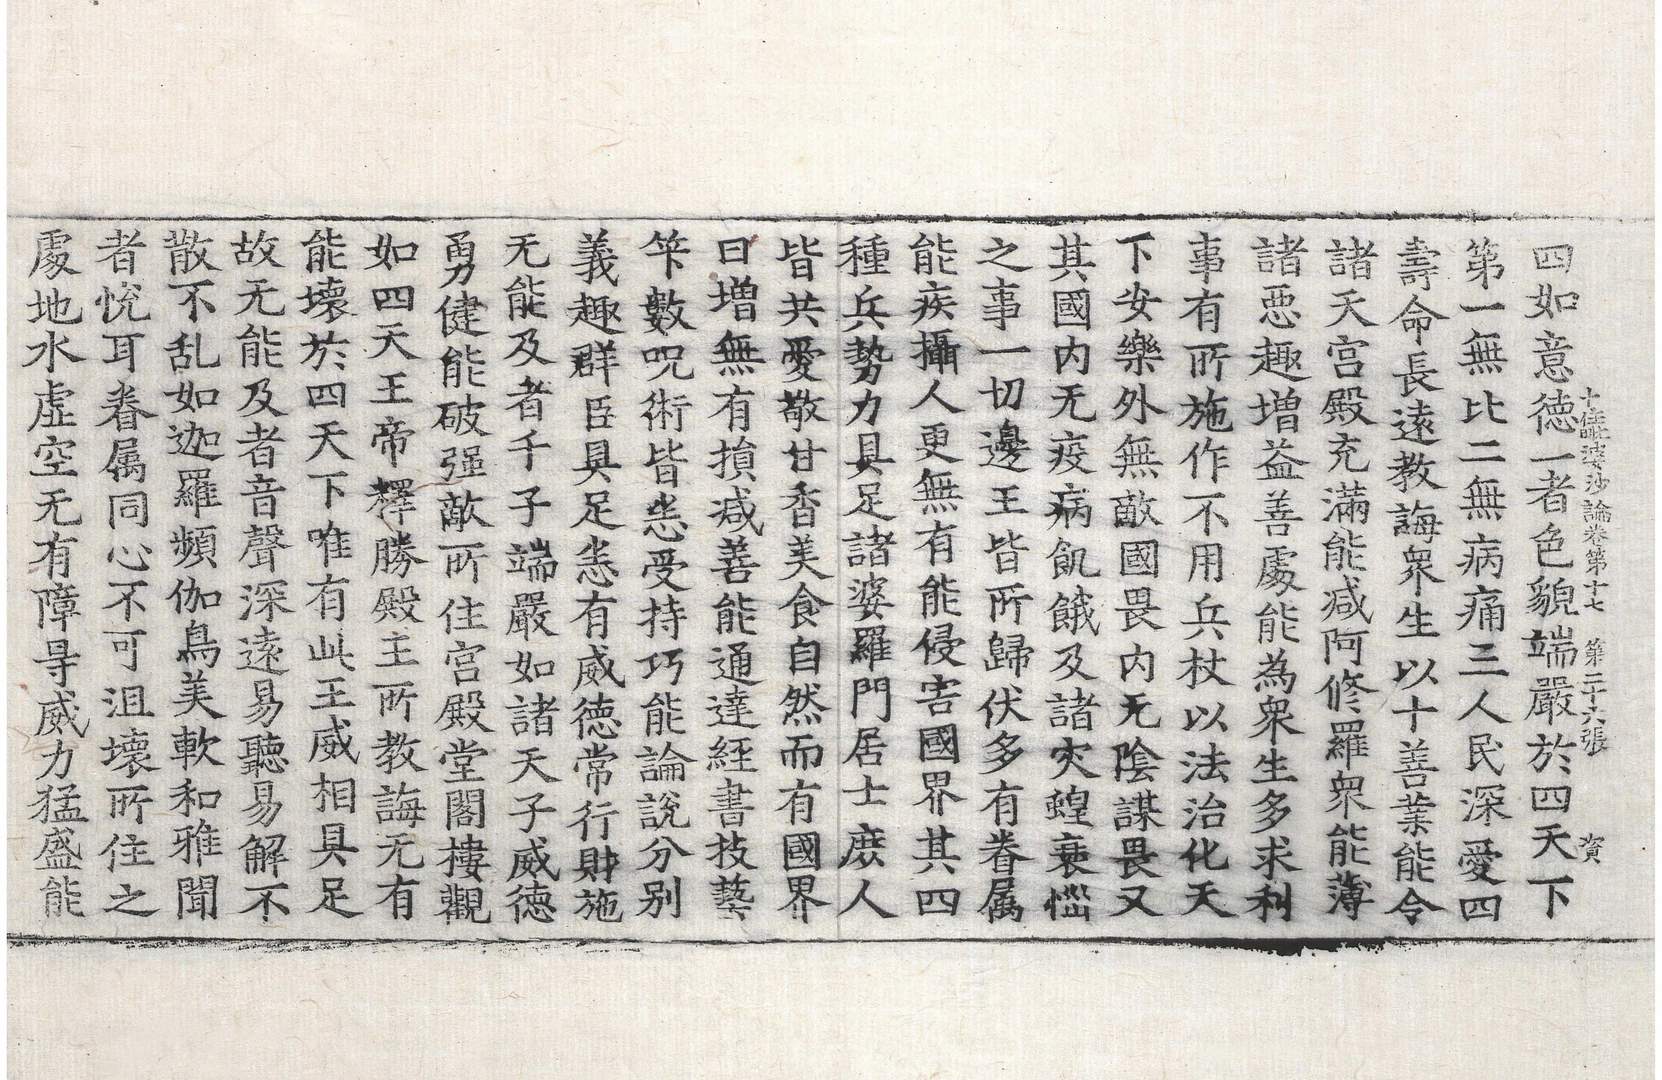 十住毗婆沙論卷第十七　第二十六張　資
四如意德一者色貌端嚴於四天下
第一無比二無病痛三人民深愛四
壽命長遠教誨衆生以十善業能令
諸天宮殿充滿能减阿修羅衆能薄
諸惡趣增益善處能為衆生多求利
事有所施作不用兵杖以法治化天
下安樂外無敵國畏內无陰謀畏又
其國內无疫病飢餓及諸灾蝗衰惱
之事一切邊王皆所歸伏多有眷属
能疾攝人更無有能侵害國界其四
種兵勢力具足諸婆羅門居士庶人
皆共愛敬甘香美食自然而有國界
日增無有損减善能通達経書技藝
笇數呪術皆悉受持巧能論說分别
義趣群臣具足悉有威德常行財施
无能及者千子端嚴如諸天子威德
勇健能破强敵所住宮殿堂閣樓觀
如四天王帝釋勝殿主所教誨无有
能壞於四天下唯有此王威相具足
故无能及者音聲深遠易聽易解不
散不乱如迦羅頻伽鳥美軟和雅聞
者恱耳眷属同心不可沮壞所住之
處地水虛空无有障㝵威力猛盛能